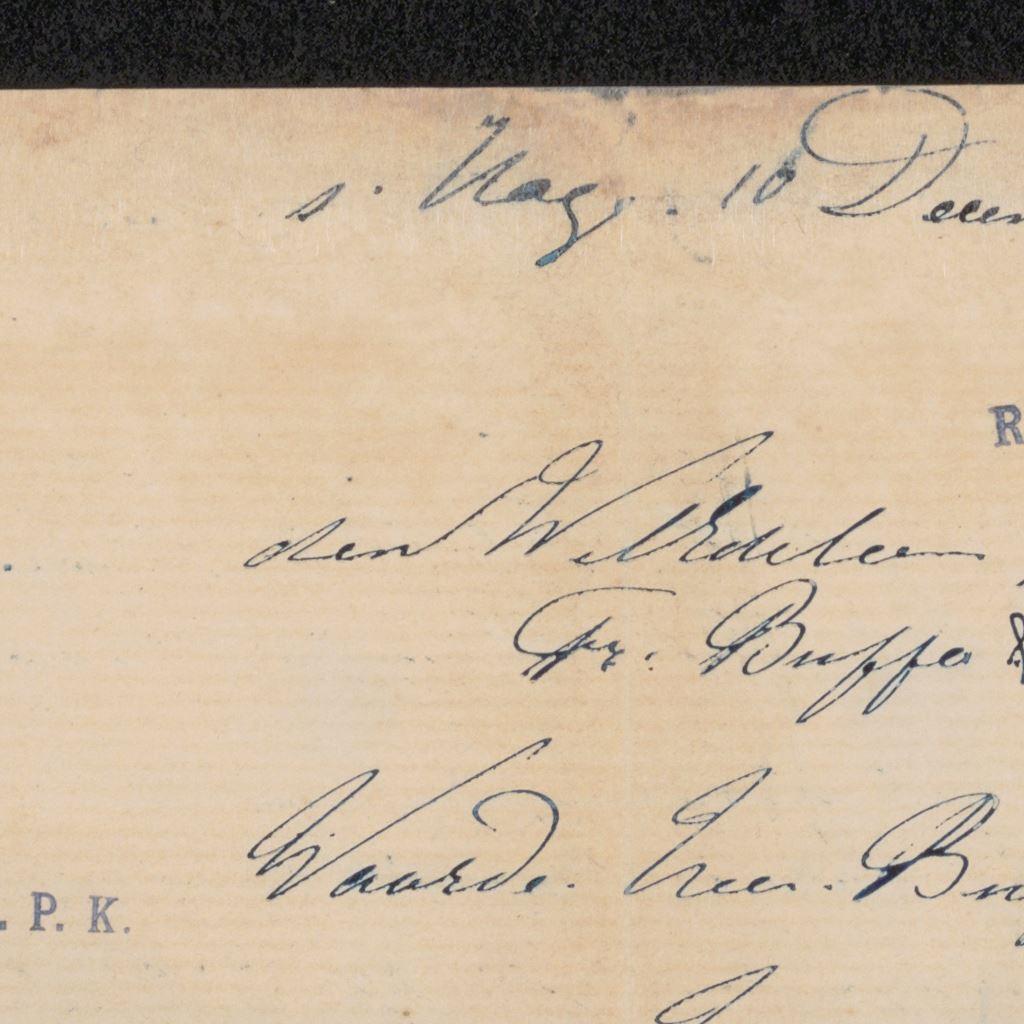 s. Hage. 10 Decem
R
den WelEdelen
Fr. Buffa &
Waarde. Heer. Bu
. P. K.